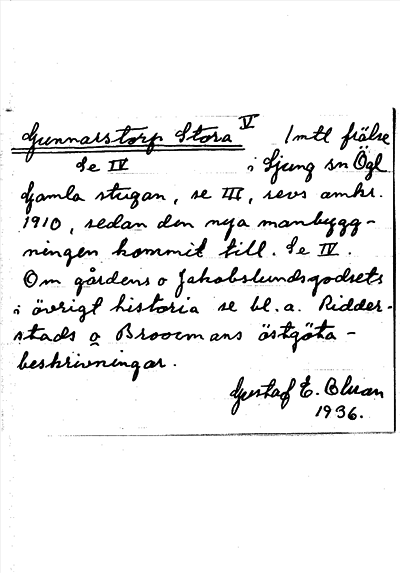 Gunnarstorp Stora V 1 mtl frälse
Se IV i Ljung sn Ögl
Gamla stugan, se III, revs omkr.
1910, sedan den nya manbygg-
ningen kommit till. Se IV.
Om gårdens o Jakobslundsgodsets
i övrigt historia se bl.a. Ridder-
stads o Broocmans östgöta-
beskrivningar.
Gustaf E.
1936.